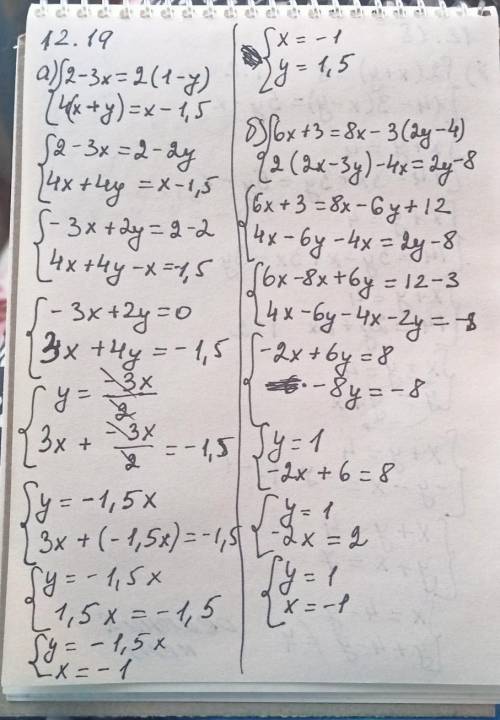 12.19
а) {2-3x=2(1-y)
{4(x+y)=x-1,5
{2-3x=2-2y
{4x+4y=x-1,5
{-3x+2y=2-2
{4x+4y-x=-1,5
{-3x+2y=0
{3x+4y=-1,5
{y=-3x/2
{3x+-3x/2=-1,5
{y=-1,5x
{3x+(-1,5x)=-1,5
{y=-1,5x
{1,5x=-1,5
{y=-1,5x
{x=-1
{x=-1
{y=1,5
б) {6x+3=8x-3(2y-4)
{2(2x-3y)-4x=2y-8
{6x+3=8x-6y+12
{4x-6y-4x=2y-8
{6x-8x+6y=12-3
{4x-6y-4x-2y=-8
{-2x+6y=8
{-8y=-8
{y=1
{-2x+6=8
{y=1
{-2x=2
{y=1
{x=-1